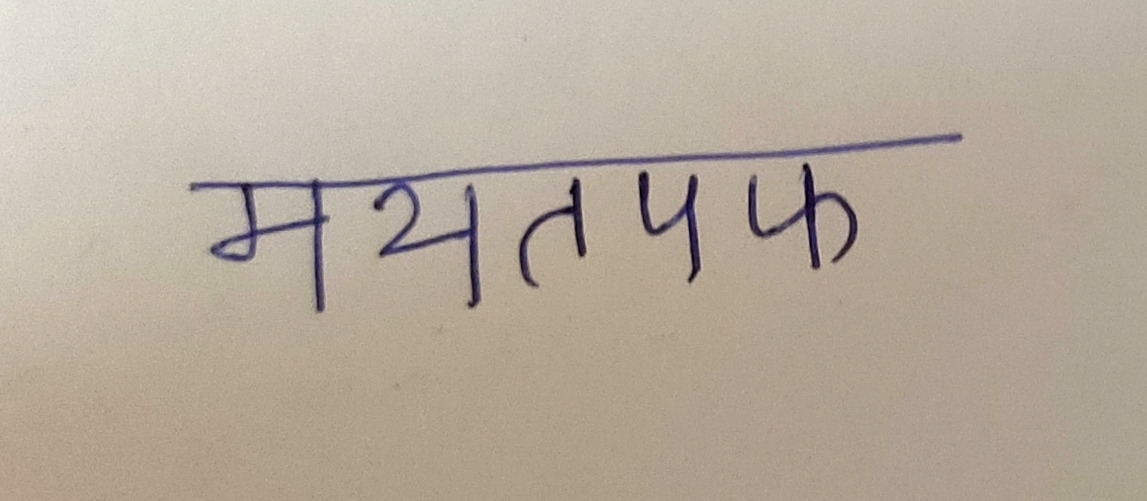 मयतपफ